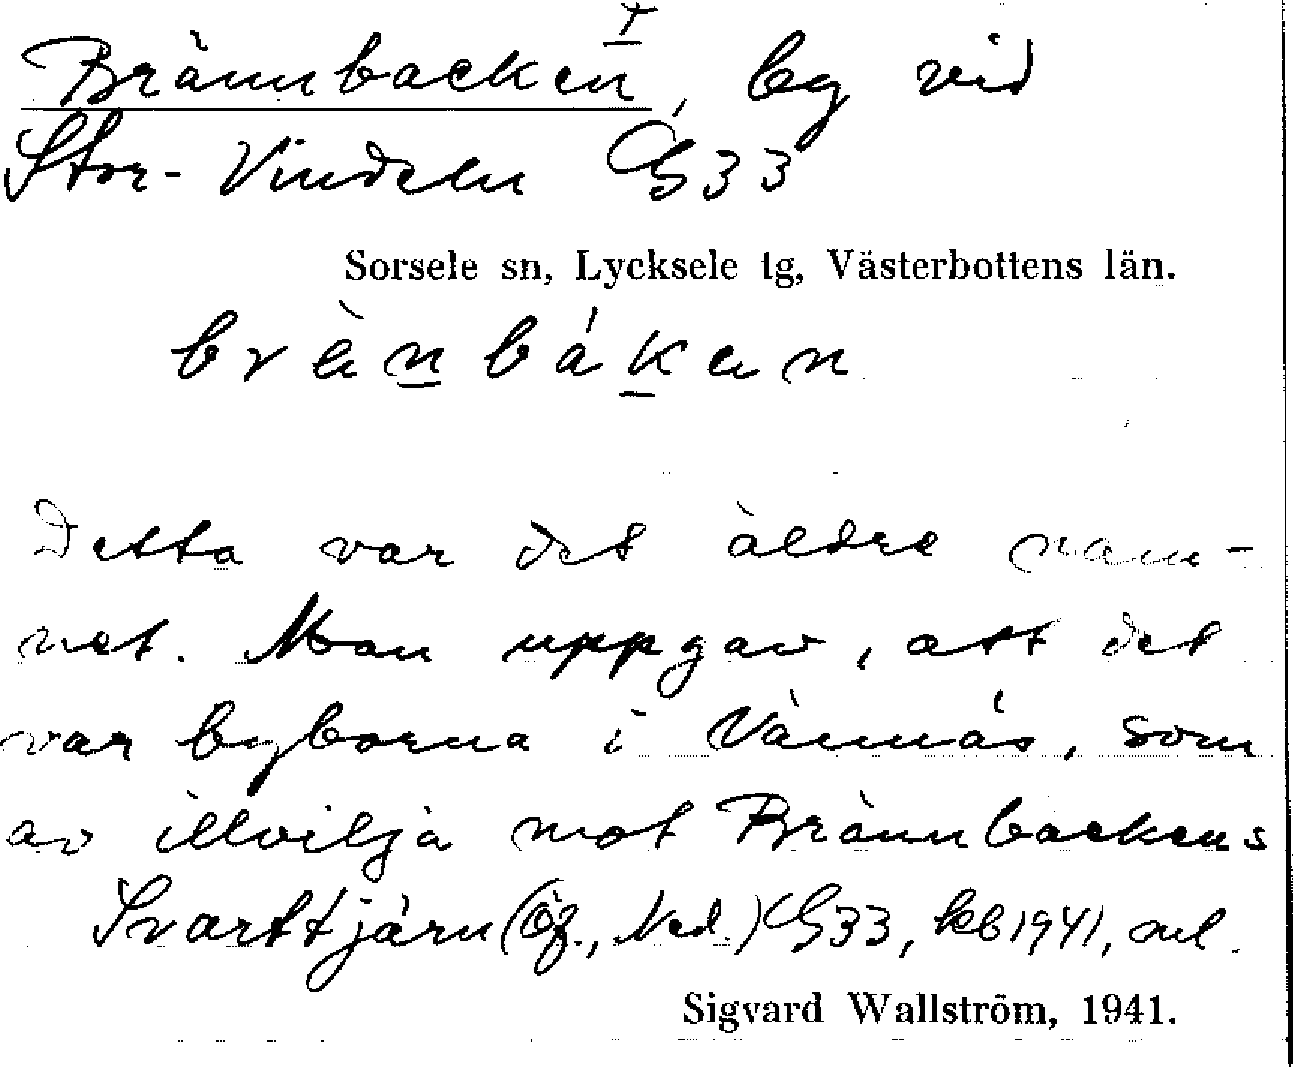 I
Brännbacken, by vid
Stor-Vindeln G33
Sorsele sn, Lycksele tg, Västerbottens län.
brèn båkan
Detta var det äldre nam-
net. Man uppgav, att det
var byborna i Vännäs, som
av illvilja mot Brännbackens
Svarttjärn (Öf., Ned.) G33, kb 1941, nel.
Sigvard Wallström, 1941.